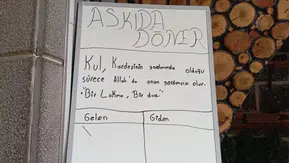 ASKIDA
DÖNER
Kul, Kardeşinin yardımında olduğu
sürece Allah'da onun yardımcısı olur.
"Bir Lokma, Bir dua"
Gelen Giden